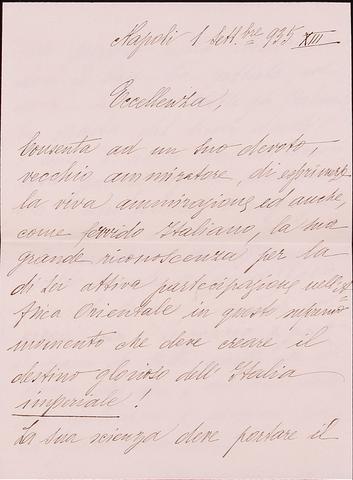 Napoli 1 Sett.bre 935 XIII
Eccellenza,
Consenta ad un Suo devoto,
vecchio ammiratore, di esprimerle
la viva ammirazione, ed anche,
come fervido Italiano, la sua
grande riconoscenza per la
di Lei attiva partecipazione nell'A=
frica Orientale in questo supremo
momento che deve creare il
destino glorioso dell'Italia
imperiale!
La sua scienza deve portare il